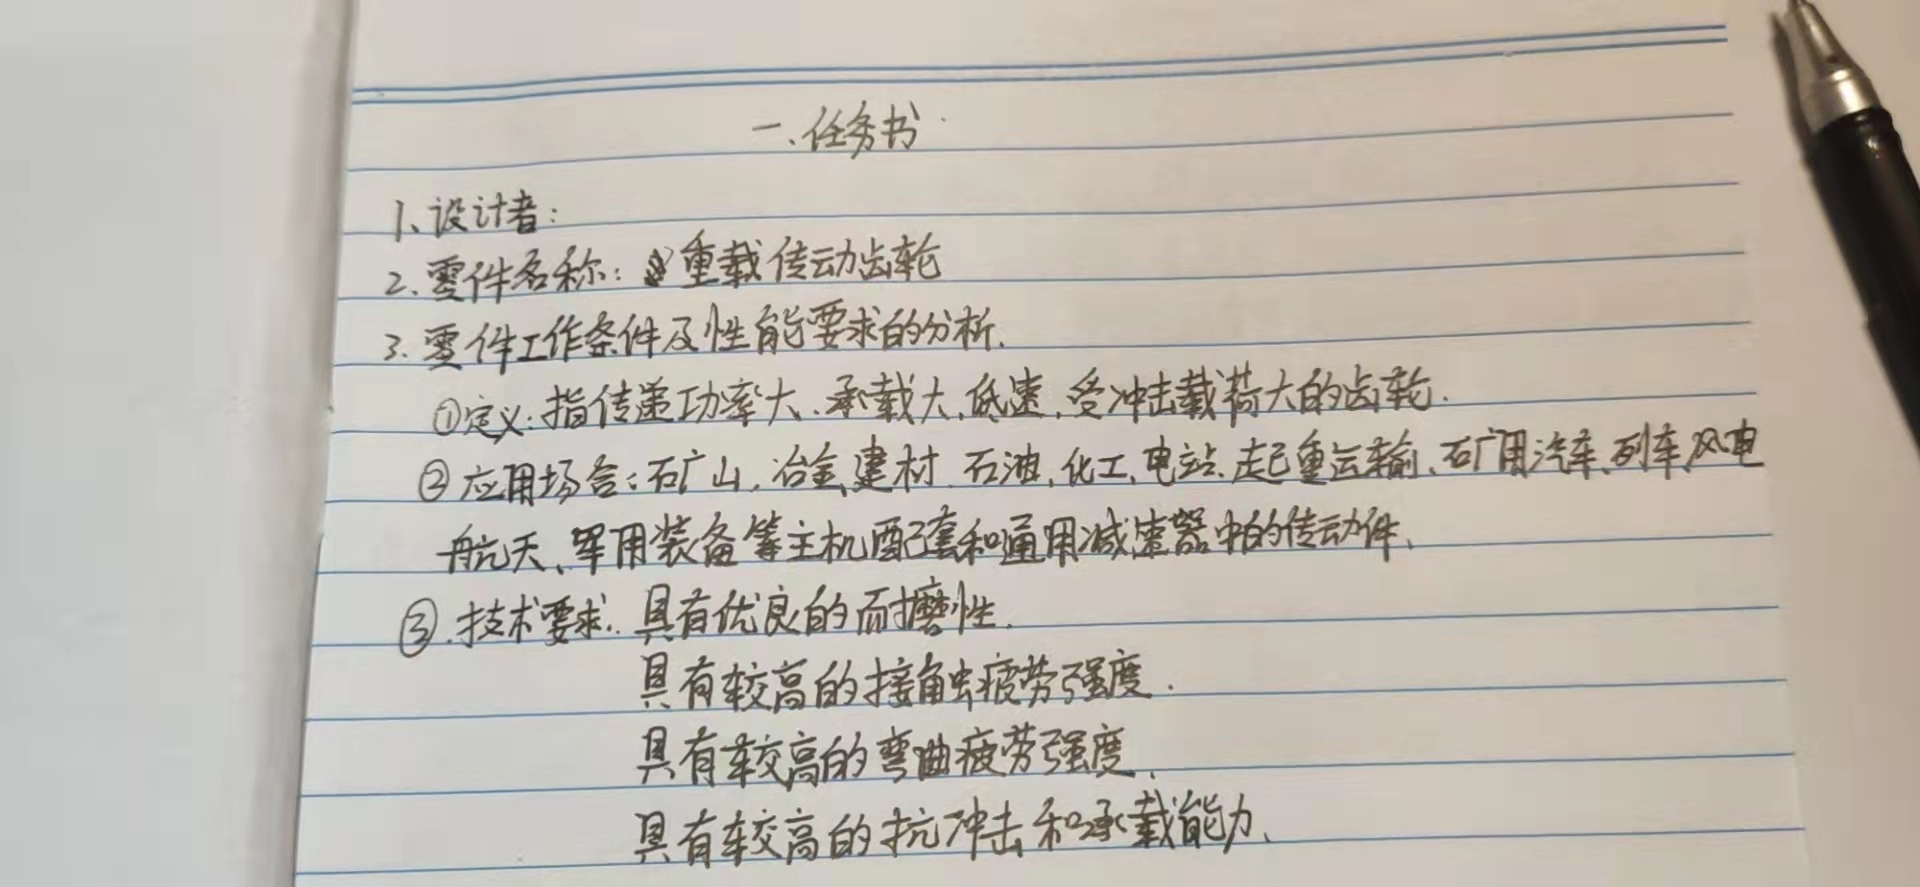 一、任务书
1、设计者:
2.零件名称: 重载传动齿轮
3.零件工作条件及性能要求的分析.
①定义:指传递功率大、承载大,低速,受冲击载荷大的齿轮.
②应用场合:矿山,冶金,建材,石油,化工,电站、起重运输、矿用汽车、列车,风电
航天、军用装备等主机配套和通用减速器中的传动件、
③.技术要求. 具有优良的耐磨性.
具有较高的接触疲劳强度.
具有较高的弯曲疲劳强度、
具有较高的抗冲击和承载能力、